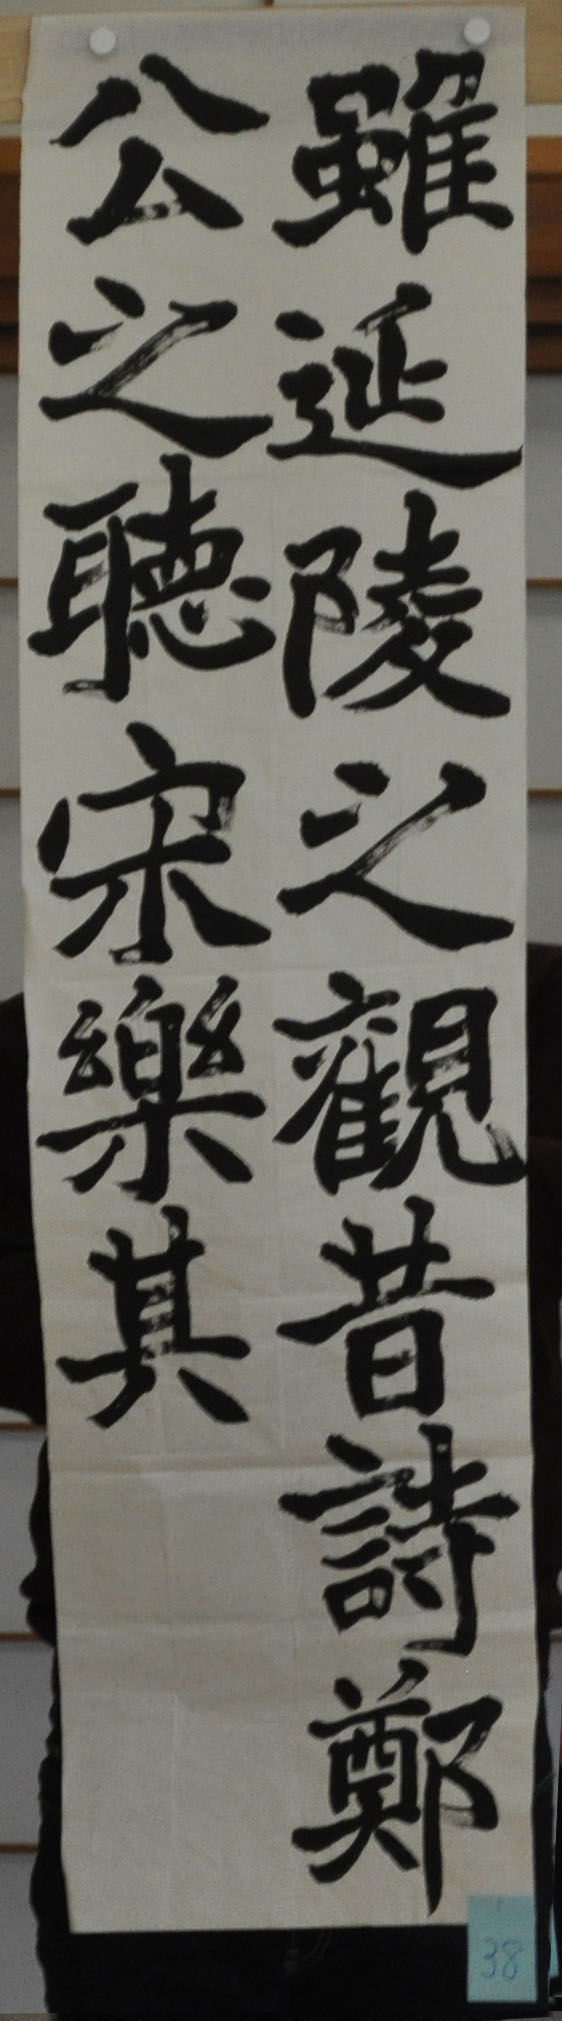 雖延陵之觀昔詩鄭
公之聽宋樂其
38